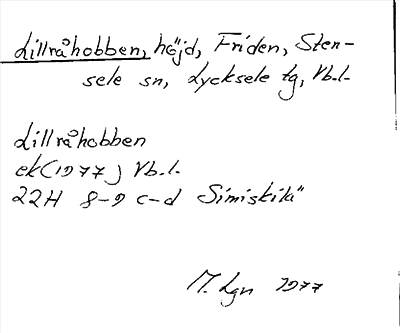 Lillråhobben, höjd, Friden, Sten-
sele sn, Lycksele tg, Vb.l.
Lillråhobben
ek(1977) Vb.l.
22H 8-9 c-d Simiskilä"
M. Lgn 1977